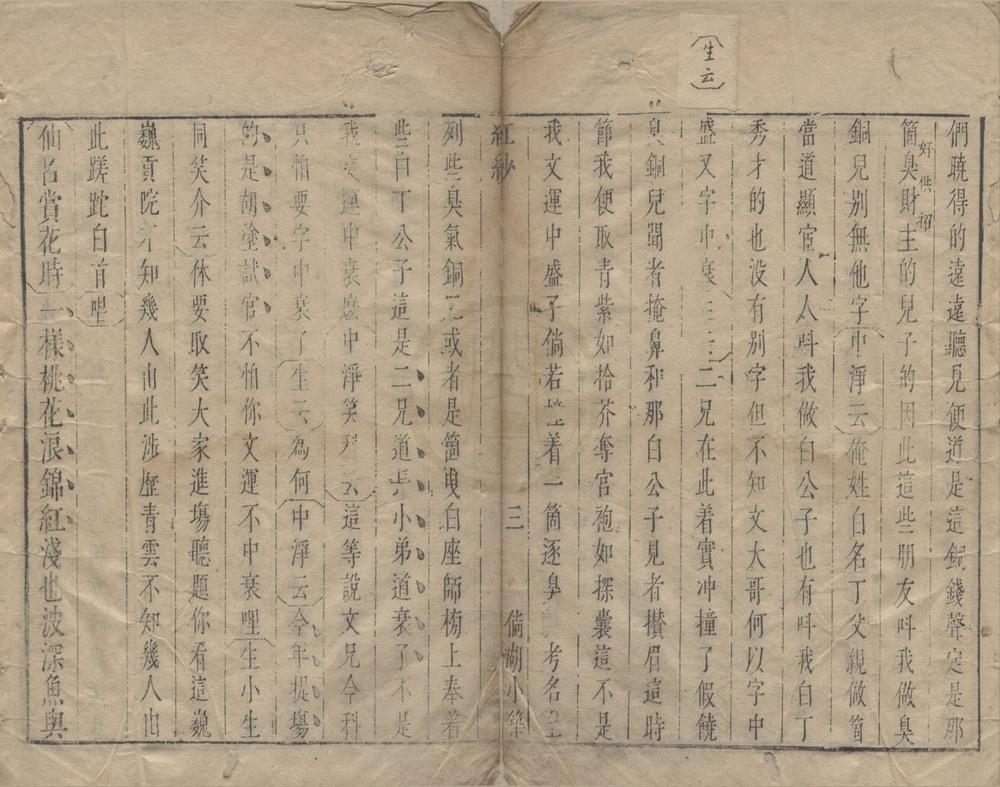 生云
們曉得的遠遠聽見便道是這銅錢聲定是那
箇臭財主的兒子的因此這些朋友呌我做臭
好供招
銅兒别無他字中淨云俺姓白名丁父親做箇
當道顯宦人人呌我做白公子也有呌我白丁
秀才的也没有别字但不知文大哥何以字中
盛又字中衰 二兄在此着實冲撞了假饒
臭銅兒聞者掩鼻和那白公子見者攅眉這時
節我便取青紫如拾芥奪官袍如探囊這不是
我文運中盛子倘若 着一箇逐臭 考名
紅紗 三 倘湖小築
列些臭氣銅 或者是箇曳白座師榜上奉着
些白丁公子這是二兄道長小弟道衰了不是
我文運中衰麽中淨笑科云這等說文兄今科
只怕要字中衰了生云為何中淨云今年提塲
的是胡塗試官不怕你文運不中衰哩生小生
同笑介云休要取笑大家進塲聽題你看這巍
巍貢院不知幾人由此涉歷青雲不知幾人由
此蹉跎白首哩
仙名賞花時一樣桃花浪錦紅淺也波深魚與